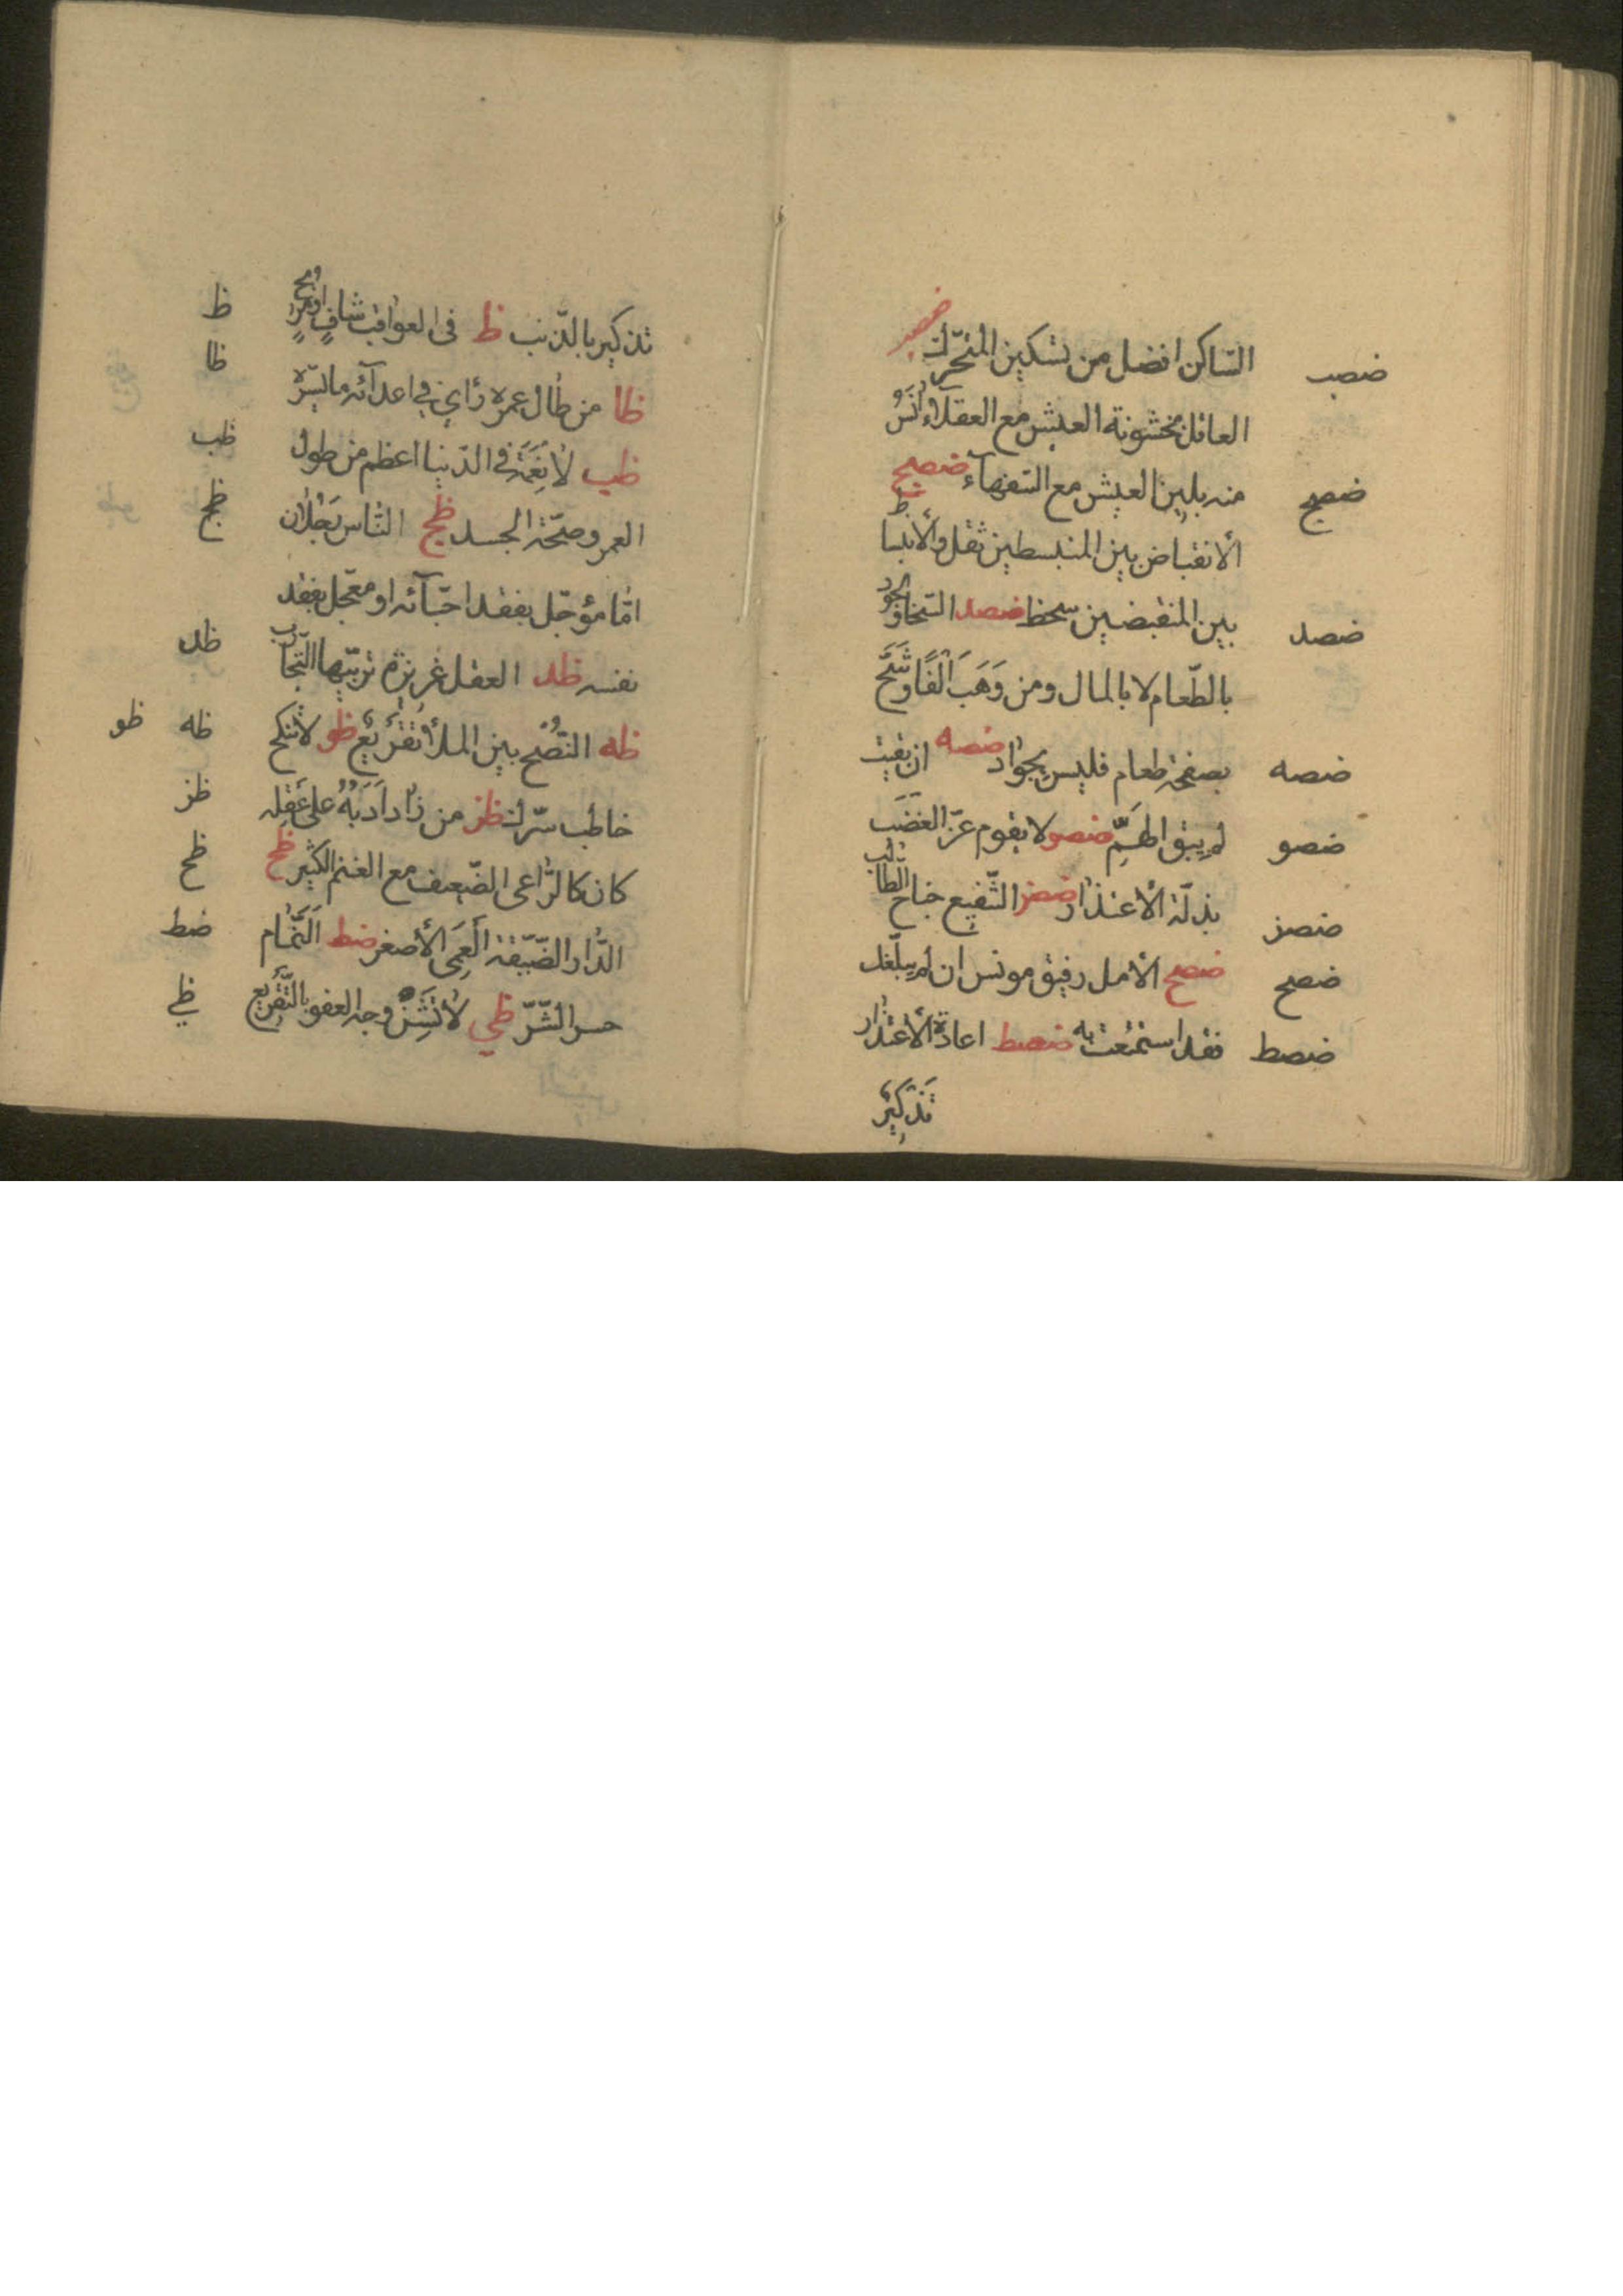 الساكن افضل من تسكين المتحرّك ضصب
ضصب
العاقل بخشونة العيش مع العقلاء آنس
منه بلين العيش مع السفهآء ضصج
ضصج
الانقباض بين المنبسطين ثقل والانبساط
بين المنقبضين سخط ضصد السخاء والجود
ضصد
بالطّعام لا بالمال ومن وَهَبَ اَلْفًا وشَحَّ
بصفحة طعام فليس بجواد ضصه ان بقيت
ضصه
لم يبق الهمّ ضصو لا يقوم عزّ الغضَب
ضصو
بذلّة الاعتذار ضصز الشّفيع جناح الطّالب
ضصز
ضصح الامل رفيق مونس ان لم يبلّغك
ضصح
فقد استمتعت به ضصط اعادة الاعتذار
ضصط
تذكيرٌ
تذكير بالذّنب ظ فى العواقب شافٍ او مريح
ظ
ظا من طال عمره رأى في اعدآئه ما يسّره
ظا
ظب لا نِعْمَةَ في الدّنيا اعظم من طول
ظب
العمر وصحّة الجسد ظج النّاس رَجُلان
ظج
امّا مؤجّل بفقد احبّآئه او معجّل بفقد
نفسه ظد العقل غريزة تربّيها التّجارب
ظد
ظه النّصُح بين الملأ تقريعٌ ظو لا تنكح
ظه ظو
خاطب سرّك ظز من زاد اَدَبُهُ على عَقْلِه
ظز
كان كالرّاعى الضّعيف مع الغنم الكثير ظح
ظح
الدّار الضّيّقة العمى الأصغر ضط النّمّام
ضط
جسر الشّرّ ظي لا تَشِنْ وجه العفو بالتّقريع
ظي